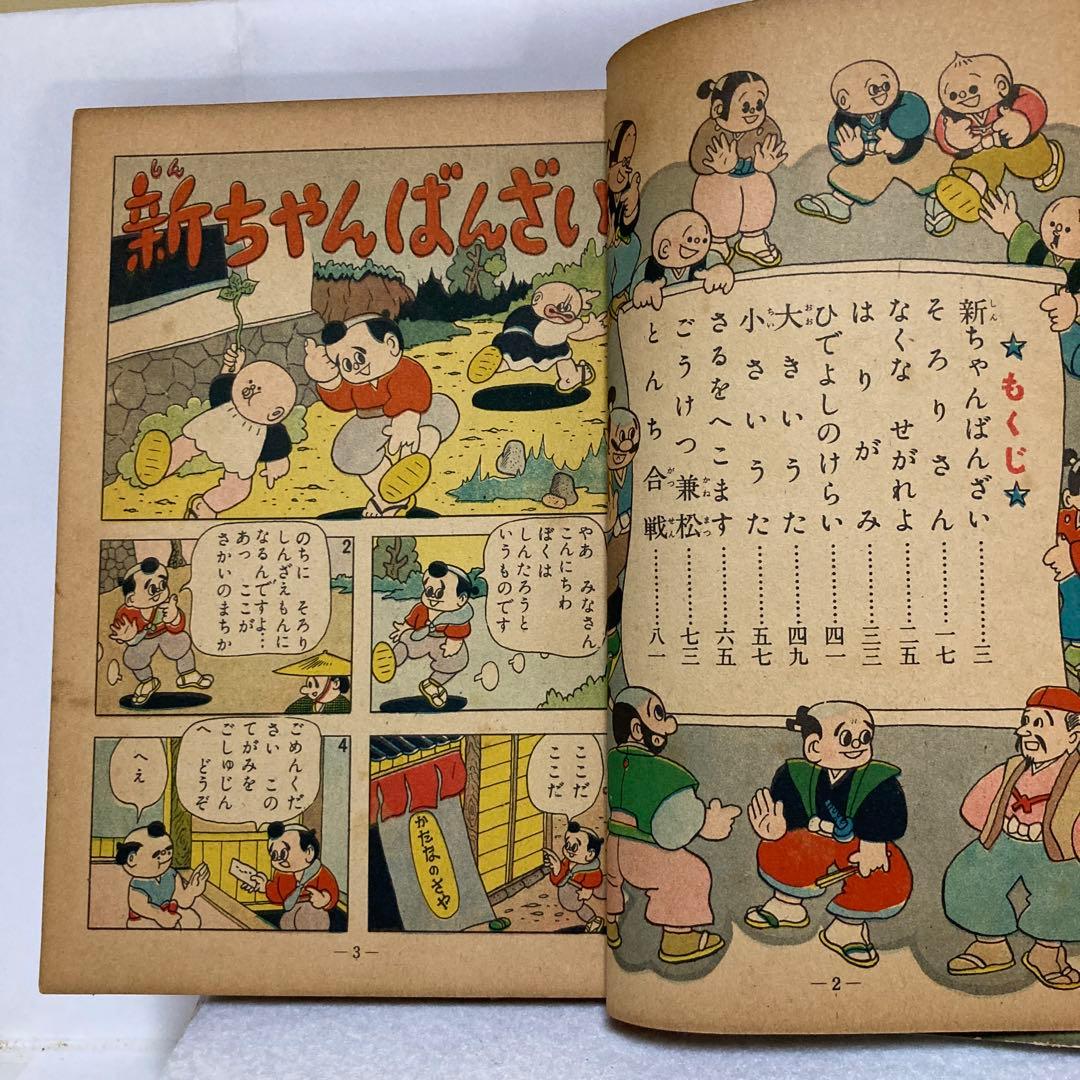 ★もくじ★
新ちゃんばんざい…………三
そろりさん…………一七
なくな せがれよ…………二五
はりがみ…………三三
ひでよしのけらい…………四一
大きいうた…………四九
小さいうた…………五七
さるをへこます…………六五
ごうけつ兼松…………七三
とんち合戦…………八一
しん
おお
ちい
かねまつ
がっせん
—2—
しん
新ちゃんばんざい
やあ みなさん
こんにちわ
ぼくは
しんたろうと
いうものです
2
のちに そろり
しんざえもんに
なるんですよ…
あっ ここが
さかいのまちか
ここだ
ここだ
かたなのさや
4
ごめんくだ
さい この
てがみを
ごしゅじん
へ どうぞ
へえ
—3—